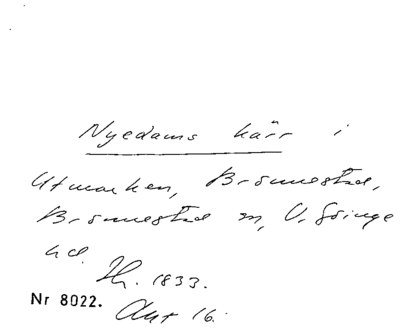 Nyedams kärr i
Utmarken, Brönnestad,
Brönnestad sn, V. Göinge
hd.
Lh. 1833.
Nr 8022.
Akt 16.